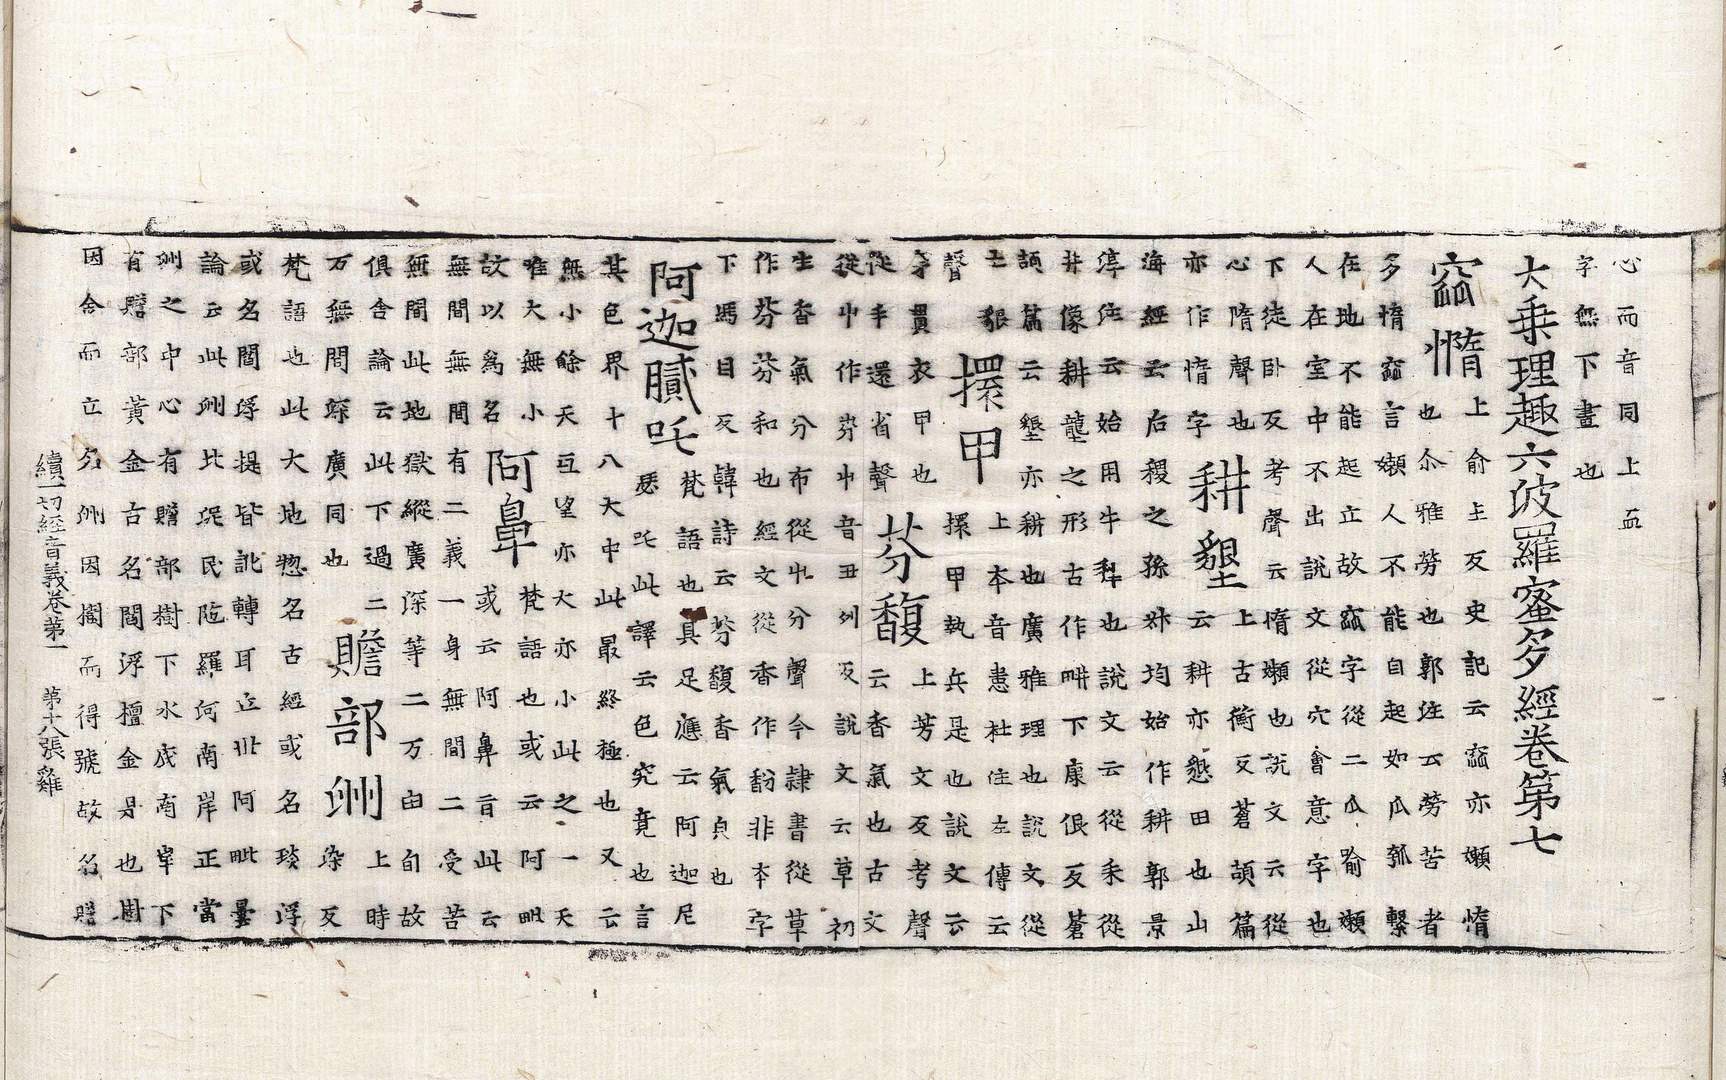 心而音同上𠀃
字無下畫也
大乗理趣六波羅蜜多經卷第七
窳惰
上俞主反史記云窳亦嬾惰
也尒雅勞也郭注云勞苦者
多惰窳言嬾人不能自起如瓜瓠繫
在地不能起立故窳字從二瓜喻嬾
人在室中不出說文從穴會意字也
下徒卧反考聲云惰嬾也說文云從
心隋聲也
耕墾
上古衡反蒼頡篇
亦作惰字
云耕亦懇田也山
海經云后稷之孫叔均始作耕郭景
淳注云始用牛犂也說文云從耒從
井像耕壟之形古作畊下康佷反蒼
頡篇云墾亦耕也廣雅理也說文從
土貇
上本音患杜注左傳云
聲
擐甲
擐甲執兵是也說文云
穿貫衣甲也
上芳文反考聲
從手還省聲
芬馥
云香氣也古文
從屮作芬屮音丑列反說文云草初
生香氣分布從屮分聲今隷書從草
作芬芬和也經文從香作馚非本字
下馮目反韓詩云芬馥香氣皃也
阿迦膩吒
梵語也具足應云阿迦尼
瑟吒此譯云色究竟也言
其色界十八大中此最終極也又云
無小餘天亘望亦大亦小此之一天
唯大無小
阿鼻
梵語也或云阿毗
故以爲名
或云阿鼻旨此云
無間無間有二義一身無間二受苦
無間此地獄縱廣深等二万由旬故
俱舍論云此下過二
上時
万無間深廣同也
贍部洲
染反
梵語也此大地惣名古經或名琰浮
或名閻浮提皆訛轉耳立世阿毗曇
論云此洲北泥民陁羅河南岸正當
洲之中心有贍部樹下水底南岸下
有贍部黃金古名閻浮檀金是也樹
因舍而立名洲因樹而得號故名贍
續一切經音義卷第一 第十八張雞